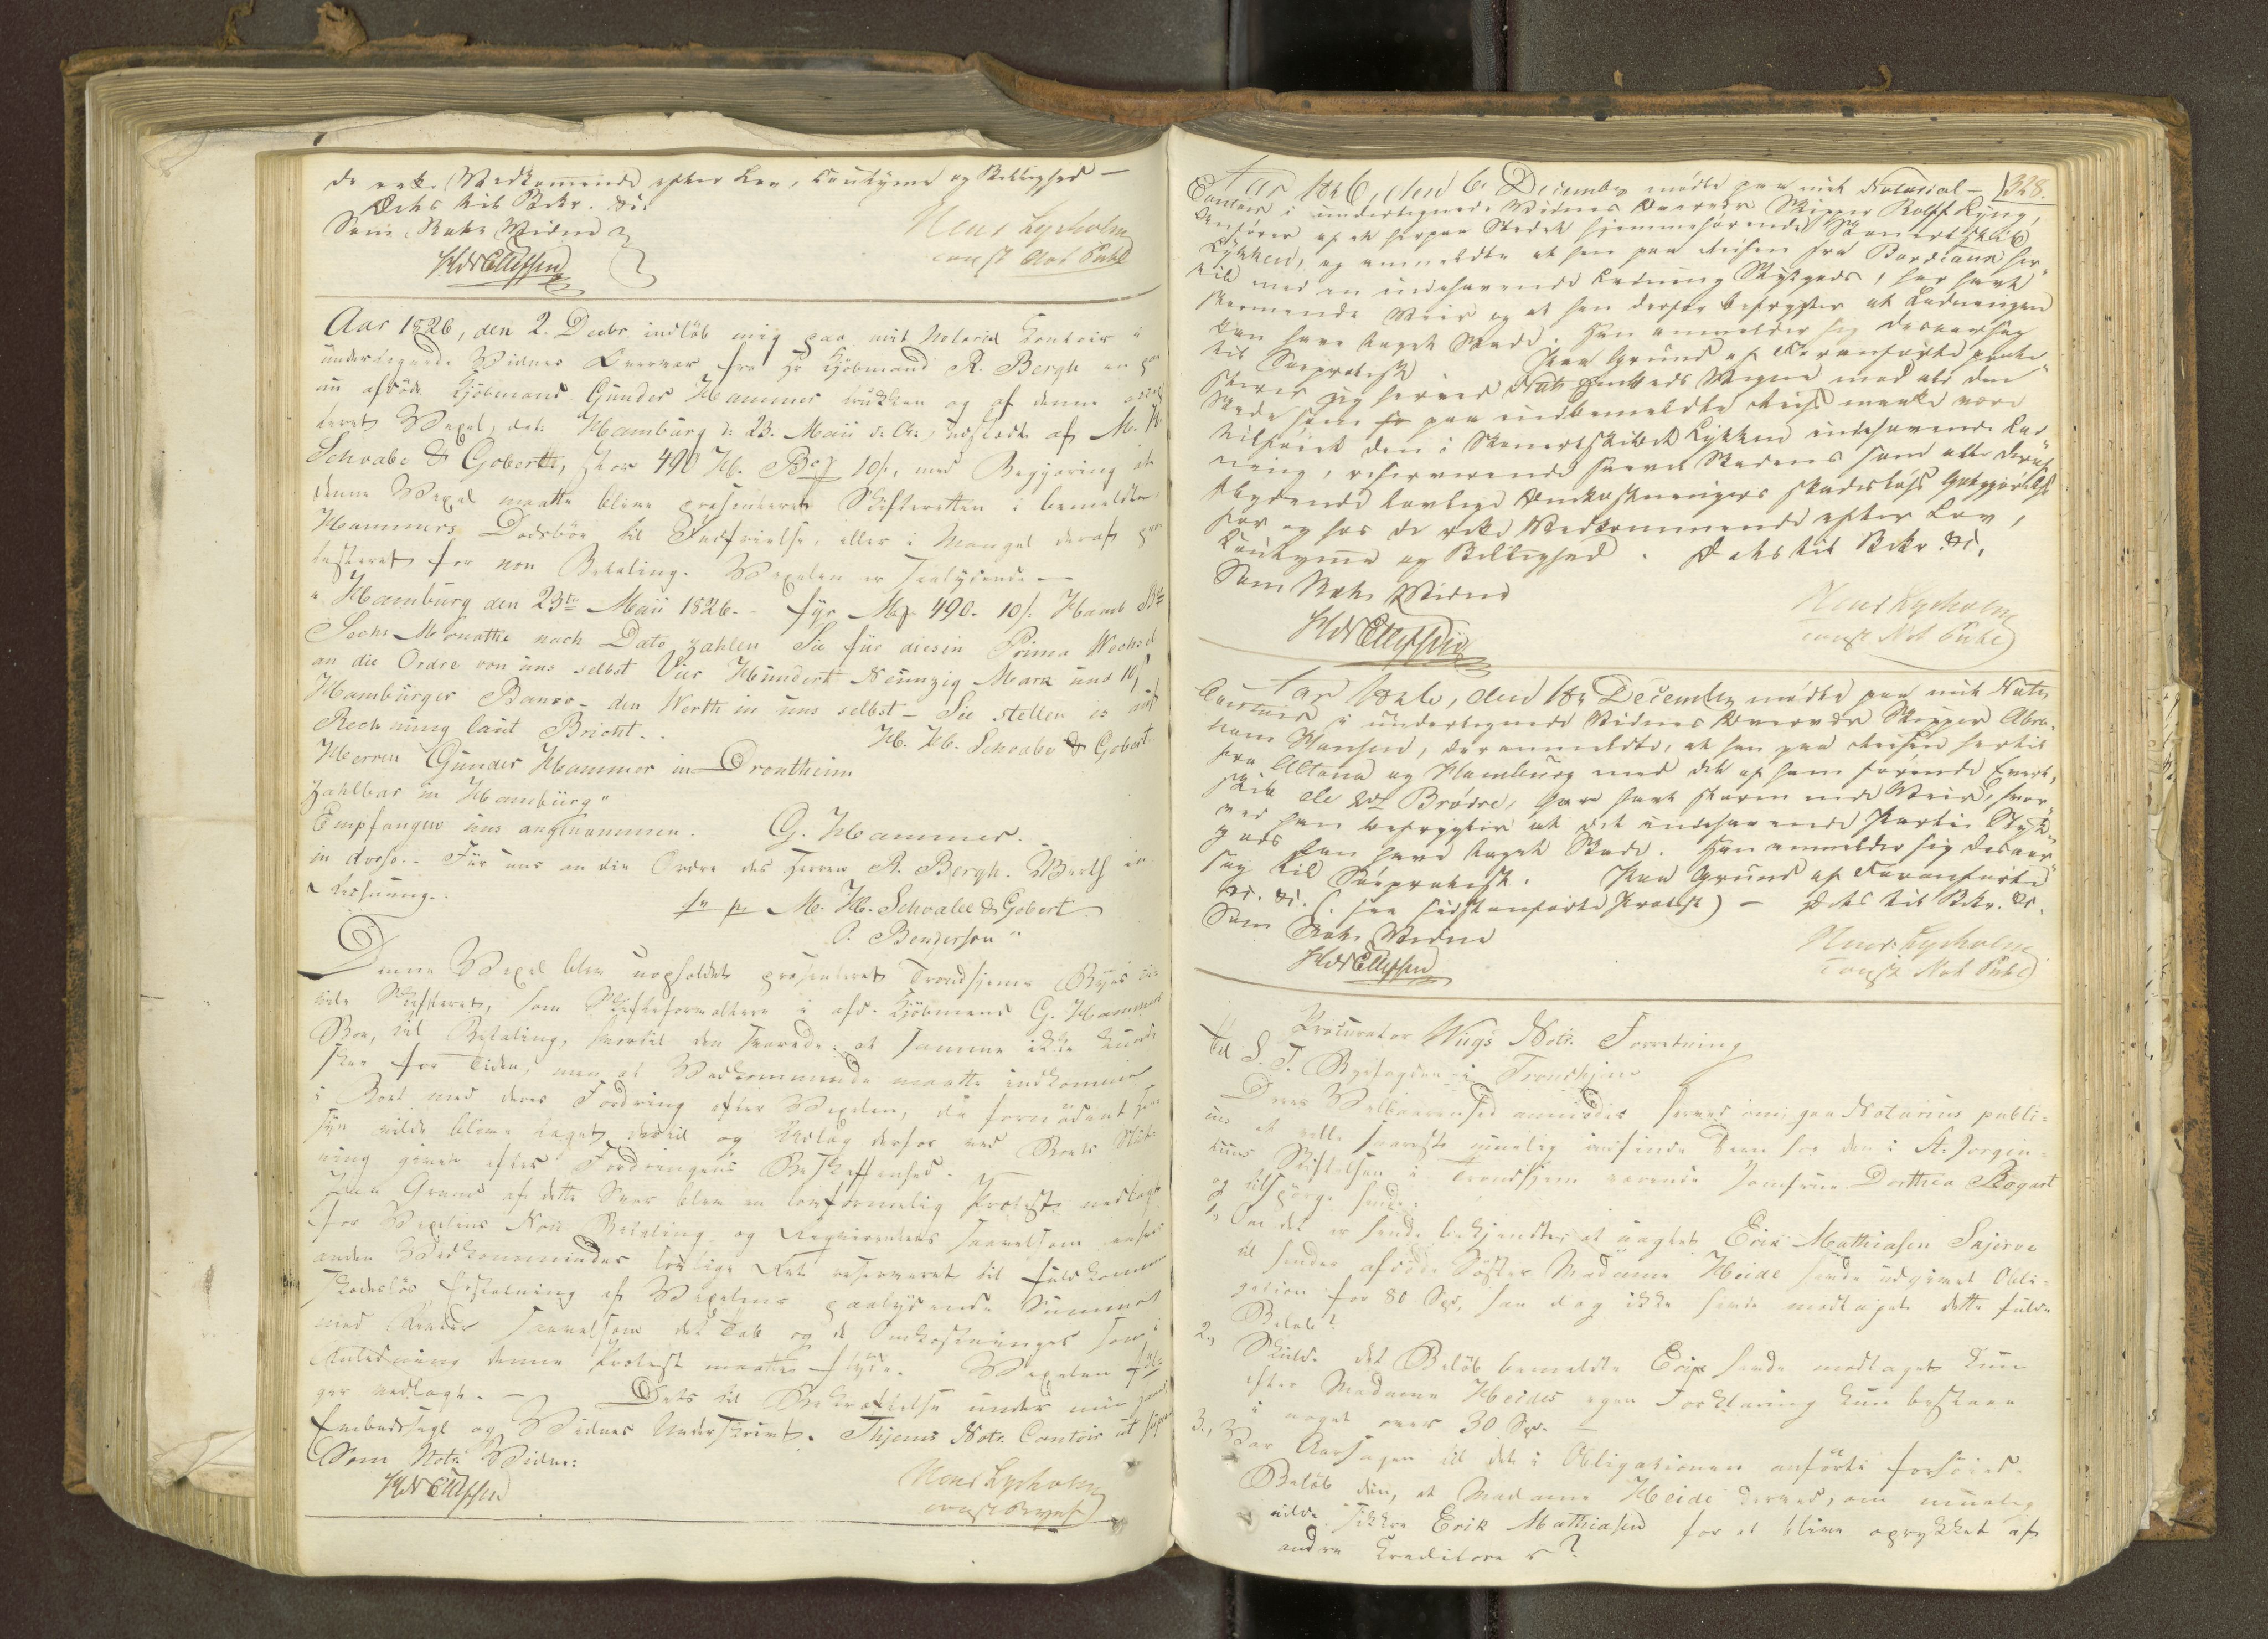 de rette Vedkommende efter Lov, Coutyme og Billighed —
Dets til Bekr. &c.
Som Notr. Vidne
HNEllefsen
Hans Lysholm
const Not Publ
Aar 1826, den 2. Decbr. indløb mig paa mit Notarial Contoir i
undertegnede Vidnes Overvær fra Hr Kjöbmand R. Bergh en paa
nu afdöde Kjöbmand Gunder Hammer trukken og af denne accep
teret Vexel, dat. Hamburg d: 23. Maii d. A., udstedt af M. H.
Schvabe & Gobertt, stor 490 Mk. Bco 10 s, med Begjæring at
denne Vexel maatte blive præsenteret Skifteretten i bemeldte
Hammers Dödsbör til Indfrielse, eller i Mangel deraf pro
testeret for non Betaling. Vexelen er saalydende —
" Hamburg den 23te Maii 1826. - für Mk 490. 10 s Hamb Bco
Sechs Monathe nach Dato zahlen Sie für diesen Prima Wechsel
an die Ordre von uns selbst Vier Hundert Neunzig Mark und 10 s
Hamburger Banco - den Werth in uns selbst - Sie stellen es auf
Rechnung laut Bricht. .
M. H. Schvabe & Gobert.
Herren Gunder Hammer in Drontheim
Zahlbar in Hamburg"
Empfangen uns angenommen. G. Hammer.
in dorso. - Für uns an die Ordre des Herren R. Bergh. Werth in
Rechnung. .
pr pr M. H. Schvabe & Gobert
P. Bendersen"
Denne Vexel blev uopholdet præsenteret Trondhjems Byes
Skifteret, som Skifteforvaltere i afd. Kjöbmand G. Hammers
Boe, til Betaling, hvortil den svarede: at samme ikke kunde
skee for Tiden, men at Vedkommende maatte indkomme
i Boet med deres Fordring efter Vexelen, da fornödent Hen
syn vilde blive taget dertil og Udlæg derfor ved Boets Slut
ning givet efter Fordringens Beskaffenhed. -
Paa Grund af dette Svar blev en lovformelig Protest nedlagt
for Vexelens Non Betaling og Reqvirentens saavelsom enhver
anden Vedkommendes lovlige Ret reserveret til fuldkommen
skadeslös Erstatning af Vexelens paalydende Summa
med Renter saavelsom det Tab og de Omkostninger som i
Anledning denne Protest maatte flyde. Vexelen föl-
ger vedlagt. - Dets til Bekræftelse under min Haand
Embedssegl og Vidnes Underskrivt. Thjems Notr. Contoir ut supra
Som Notr. Vidne:
HNEllefsen
Hans Lysholm
const Byef
328.
Aar 1826, den 6 December mödte paa mit Notarial-
Contoir i undertegnede Vidnes Overvær Skipper Rolff Lyng,
Anförer af det herpaa Stedet hjemmehörende Skonertskib
Lykken, og anmeldte at han paa Reisen fra Bordeaux her-
til med en indehavende Ladning Stykgods, har havt
stormende Veir og at han derfor befrygter at Ladningen
kan have taget Skade. Han anmelder sig desaarsag
til Söeprotest. Paa Grund af Foranförte prote-
sterer jeg herved Notr. Embeds Vegne mod ald den
Skade som paa indbemeldte Reise maatte være
tilföiet den i Skonertskibet Lykken indehavende Lad
ning, reserverende saavel Skadens som alle deraf
flydende lovlige Omkostningers skadeslöse Godtgjörelse
for og hos de rette Vedkommende efter Lov,
Coutyme og Billighed. Dets til Bekr. &c.
Som Notr. Vidne
HNEllefsen
Hans Lysholm
const Not Publ
Aar 1826, den 18 December mödte paa mit Notr.
Contoir i undertegnede Vidnes Overvær Skipper Abra-
ham Hansen, der anmeldte, at han paa Reisen hertil
fra Altona og Hamburg med det af ham förende Evert-
skib de 2de Brödre, har havt stormende Veir, hvor-
ved han befrygter at det indehavende Partie Styk-
gods kan have taget Skade. Han anmelder sig desaar-
sag til Söeprotest. Paa Grund af Foranförte
&c. &c. (: see sidstanförte Protest) — Dets til Bekr. &c.
Som Notr. Vidne
HNEllefsen
Hans Lysholm
const Not Publ
Procurator Wiigs Notr. Forretning
Til S. T. Byefogden i Trondhjem
Deres Velbaarenhed anmodes herved om, paa Notarius publi-
cus at ville snareste muelig indfinde Dem hos den i St. Jörgen-
huus Stiftelsen i Trondhjem værende Jomfrue Dorthea Bogart
og tilspörge hende:
1., Om det er hende bekjendt, at uagtet Erik Mathiasen Skjerve
til hendes afdöde Söster Madame Heide havde udgivet Obli-
gation for 80 Spd, han dog ikke havde modtaget dette fulde
Belöb?
2., Skulde det Belöb bemeldte Erik havde modtaget kun
efter Madame Heides egen Forklaring kun bestaae
i noget over 30 Spd.
3., Var Aarsagen til det i Obligationen anförte forhöiede
Belöb den, at Madame Heide derved, om muelig
vilde sikkre Erik Mathiasen for at blive oprykket af
andre Creditorer?